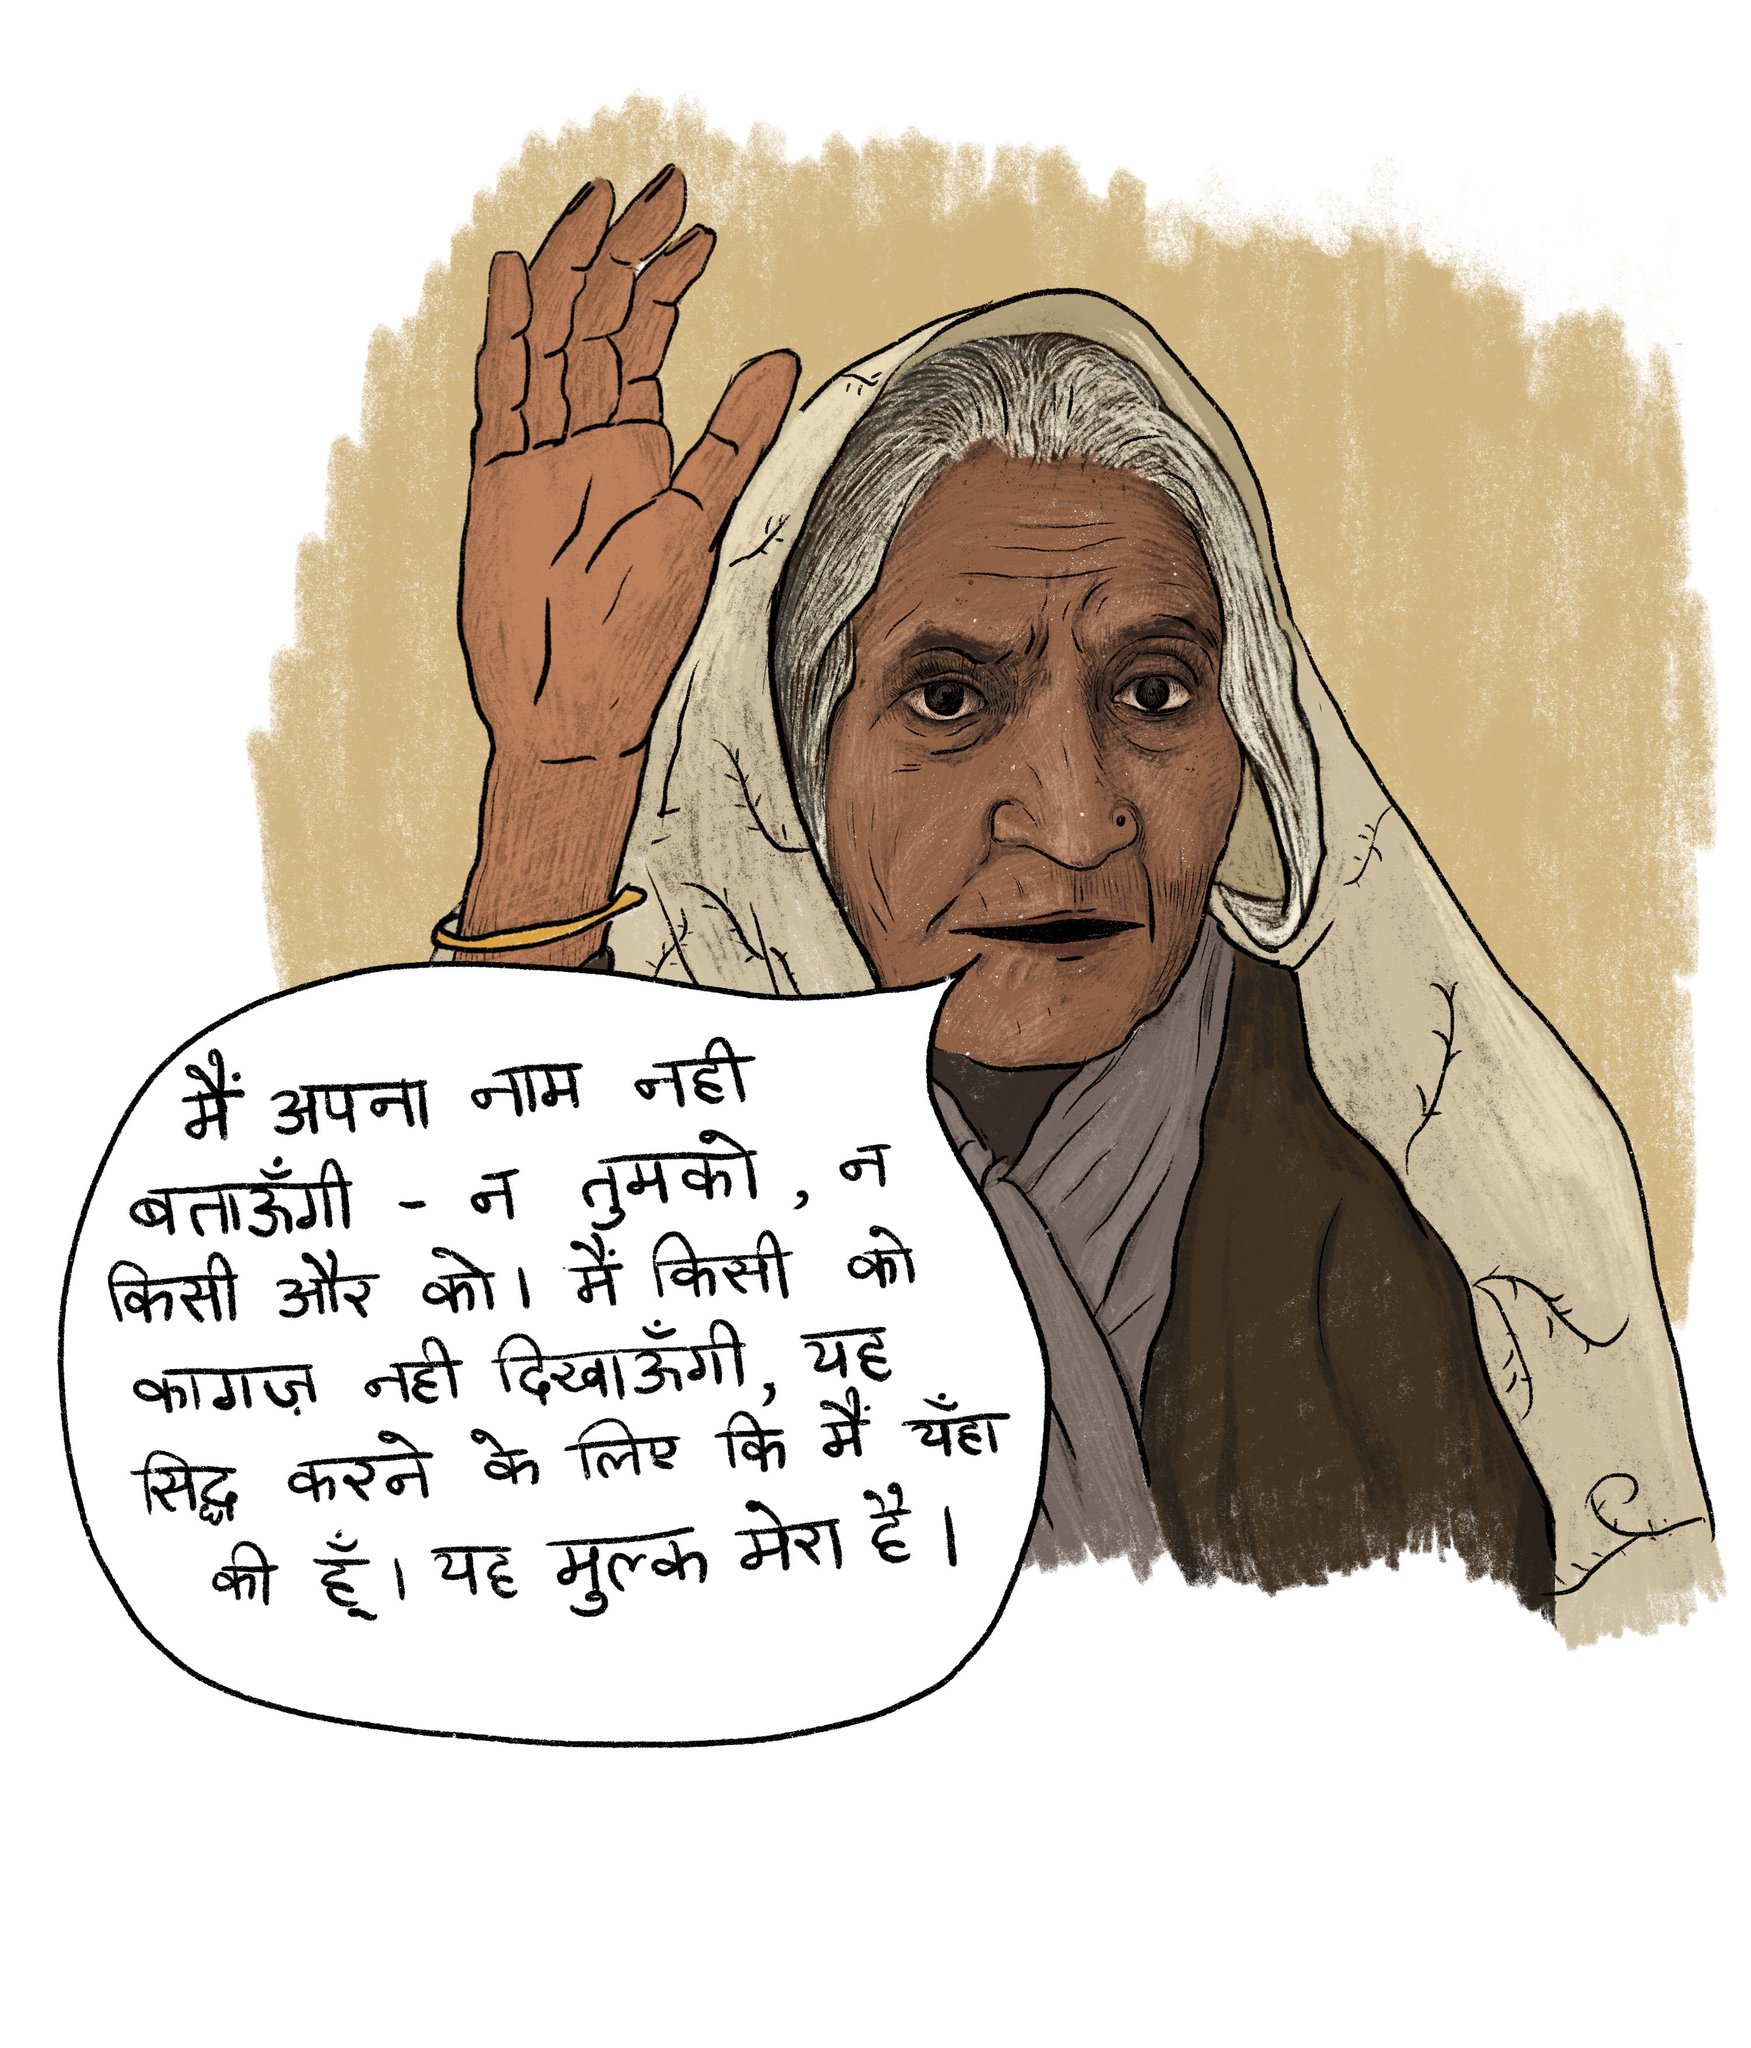 मैं अपना नाम नही
बताऊँगी - न तुमको, न
किसी और को। मैं किसी को
कागज़ नही दिखाऊँगी, यह
सिद्ध करने के लिए कि मैं यँहा
की हूँ। यह मुल्क मेरा है।